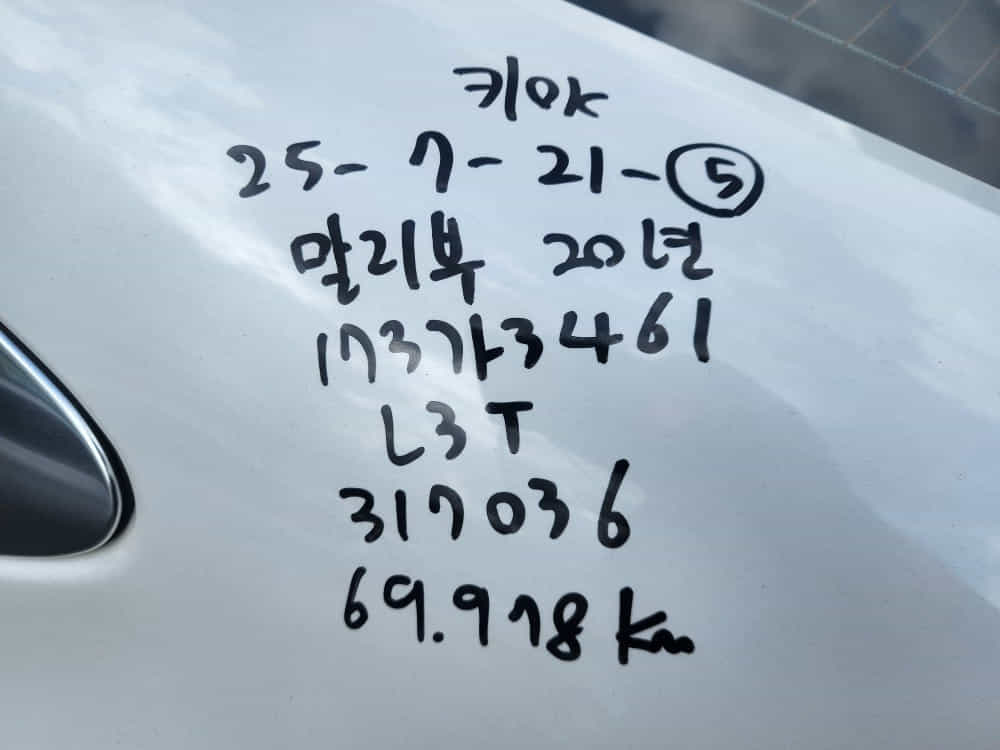 키OK
25-7-21-⑤
말리부 20년
173가3461
L3T
317036
69.978km